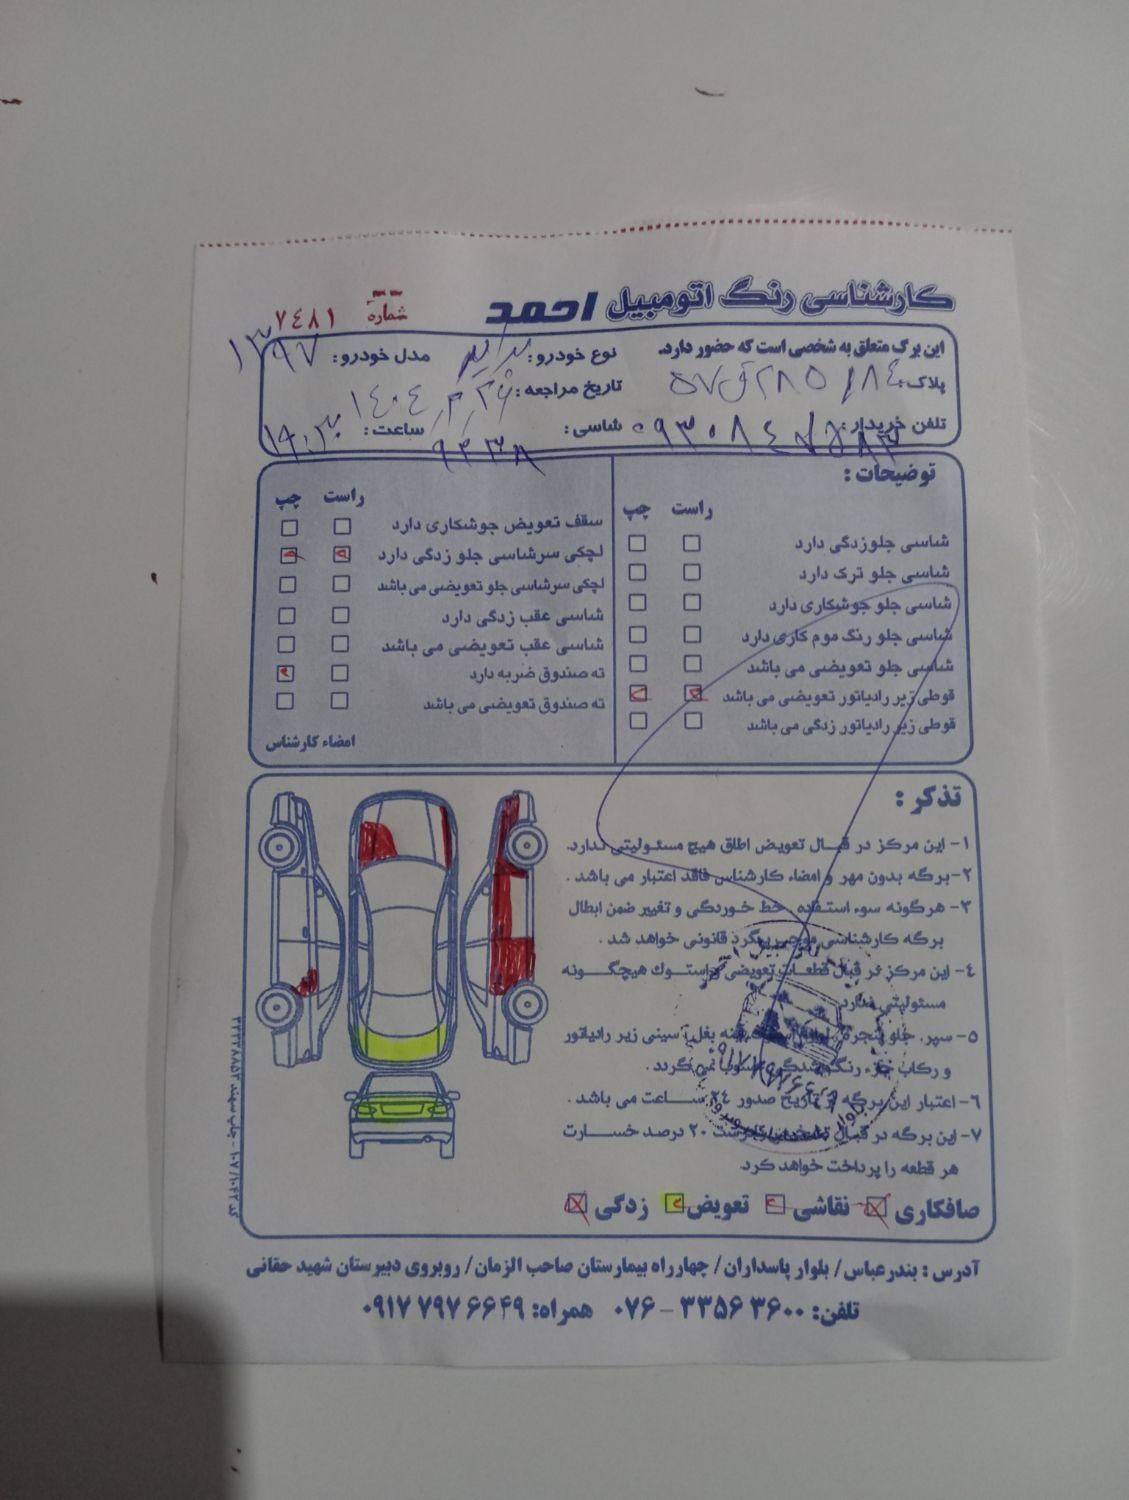 کارشناسی رنگ اتومبیل احمد
شماره ۷٤۸۱
این برگ متعلق به شخصی است که حضور دارد.
نوع خودرو: پراید
مدل خودرو: ۱۳۹۷
پلاک: ۸۴ / ۲۸۵ ق ۵۷
تاریخ مراجعه: ۱۴۰۴
تلفن خریدار:
شاسی: ۹۲۳۸
ساعت: ۱۹:۳۰
توضیحات:
راست چپ
شاسی جلوزدگی دارد
شاسی جلو ترک دارد
شاسی جلو جوشکاری دارد
شاسی جلو رنگ موم کاری دارد
شاسی جلو تعویضی می باشد
قوطی زیر رادیاتور تعویضی می باشد
قوطی زیر رادیاتور زدگی می باشد
راست چپ
سقف تعویض جوشکاری دارد
لچکی سرشاسی جلو زدگی دارد
لچکی سرشاسی جلو تعویضی می باشد
شاسی عقب زدگی دارد
شاسی عقب تعویضی می باشد
ته صندوق ضربه دارد
ته صندوق تعویضی می باشد
امضاء کارشناس
تذکر:
۱- این مرکز در قبال تعویض اطاق هیچ مسئولیتی ندارد.
۲- برگه بدون مهر و امضاء کارشناس فاقد اعتبار می باشد.
۳- هرگونه سوء استفاده، خط خوردگی و تغییر ضمن ابطال
برگه کارشناسی موجب پیگرد قانونی خواهد شد.
٤- این مرکز در قبال قطعات تعویضی و استوک هیچگونه
مسئولیتی ندارد.
۵- سپر، جلو پنجره، بغل، سینی زیر رادیاتور
و رکاب جزء رنگ شدگی محسوب نمی گردد.
۶- اعتبار این برگه از تاریخ صدور ۲٤ ساعت می باشد.
۷- این برگه در قبال تشخیص نادرست ۲۰ درصد خسارت
هر قطعه را پرداخت خواهد کرد.
صافکاری نقاشی تعویض زدگی
آدرس: بندرعباس/ بلوار پاسداران/ چهارراه بیمارستان صاحب الزمان/ روبروی دبیرستان شهید حقانی
تلفن: ۳۳۵۶۳۶۰۰ - ۰۷۶ همراه: ۰۹۱۷۷۹۷۶۶۴۹